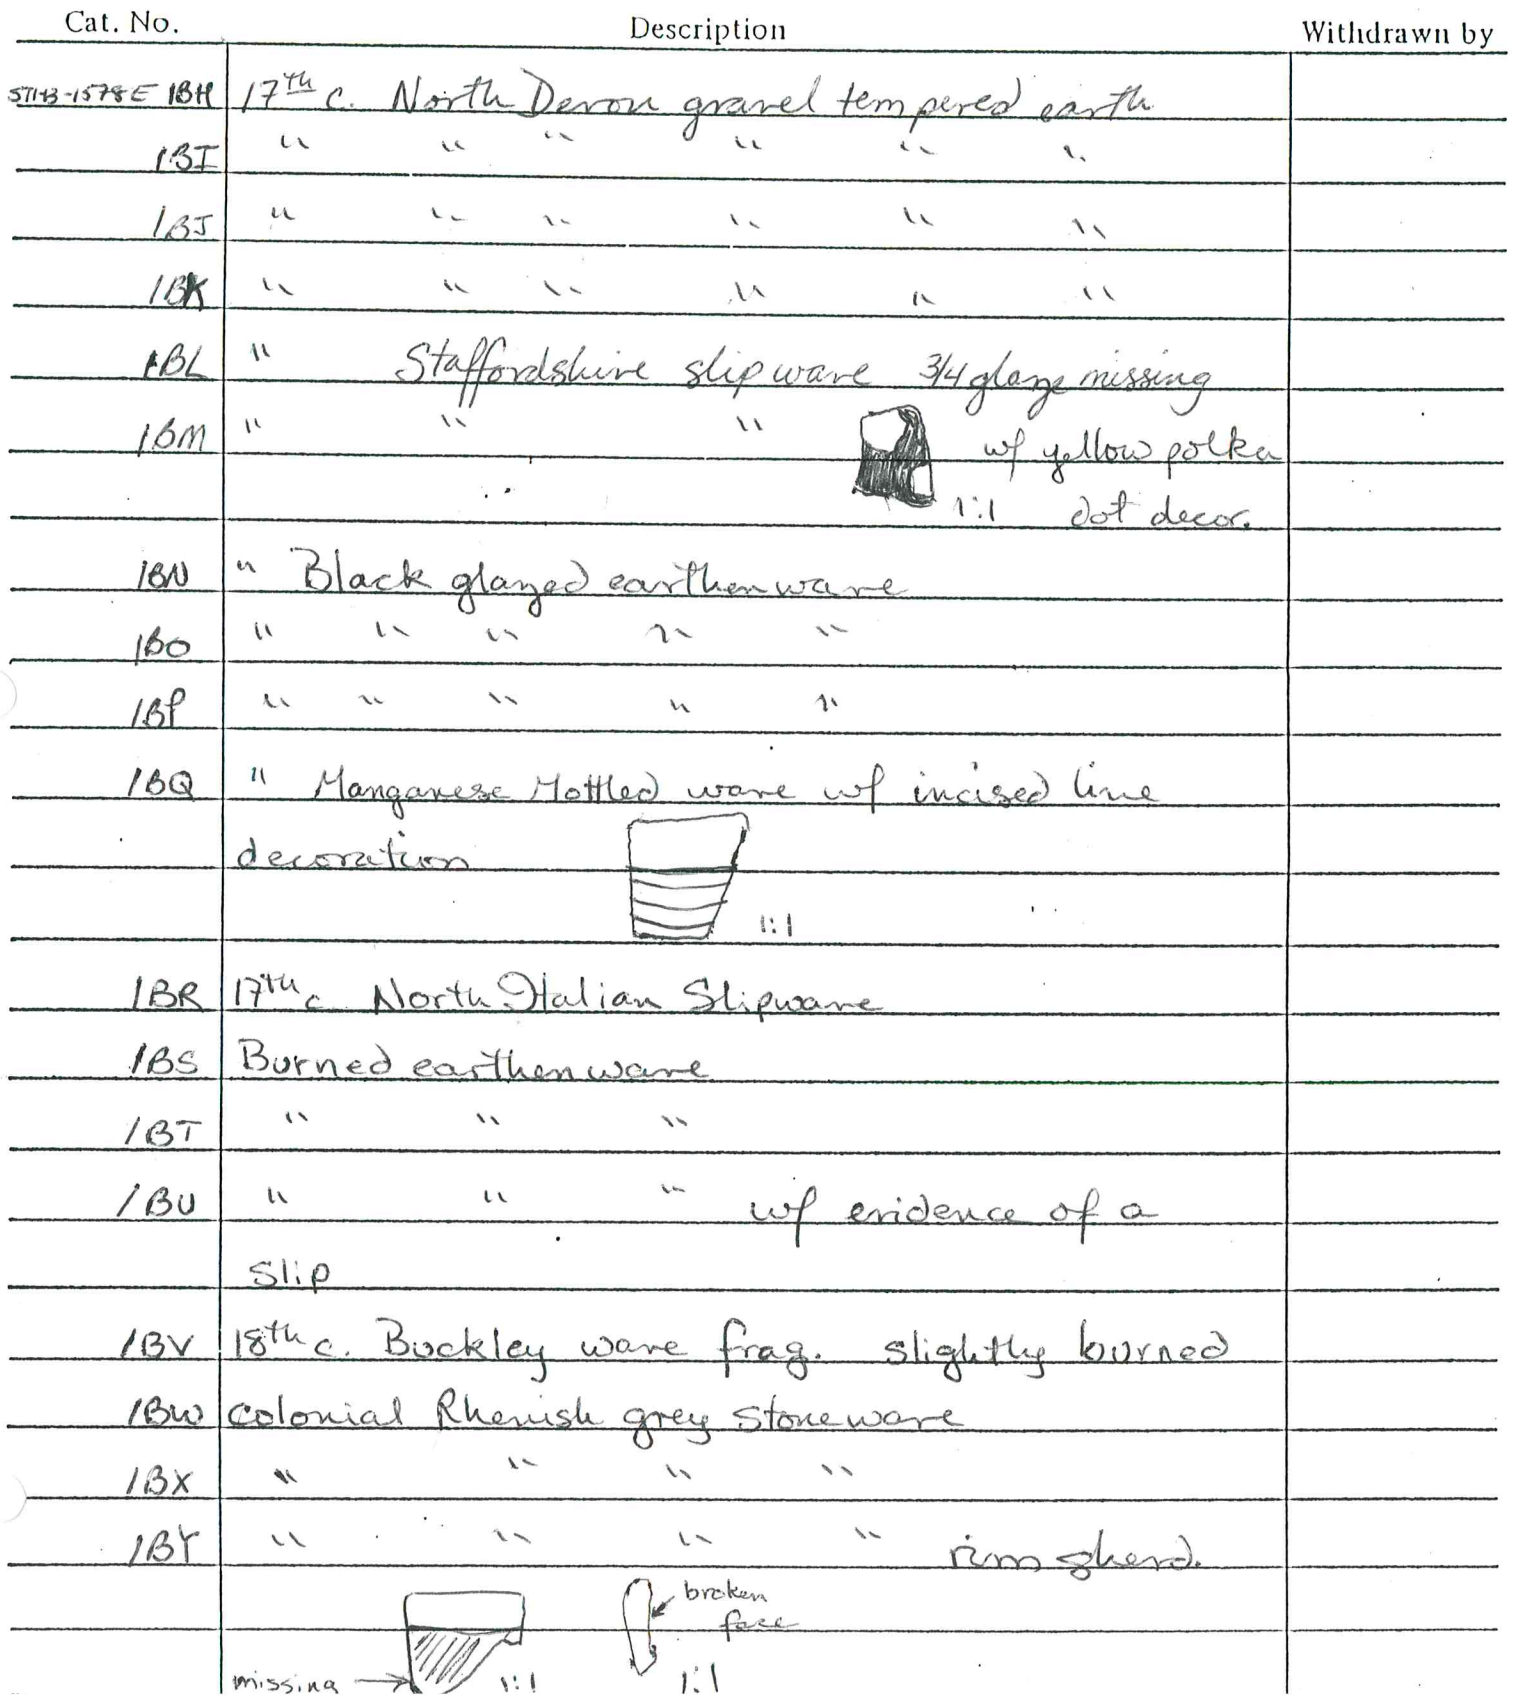 Cat. No. Description Withdrawn by
ST1-13-1578E 1BH 17th c. North Devon gravel tempered earth
1BI " " " " " "
1BJ " " " " " "
1BK " " " " " "
1BL " Staffordshire slipware 3/4 glaze missing
1BM " " " w/ yellow polka
1:1 dot decor.
1BN " Black glazed earthenware
1BO " " " " "
1BP " " " " "
1BQ " Manganese Mottled ware w/ incised line
decoration
1:1
1BR 17th c. North Italian Slipware
1BS Burned earthenware
1BT " " "
1BU " " " w/ evidence of a
slip
1BV 18th c. Buckley ware frag. slightly burned
1BW colonial Rhenish grey stoneware
1BX " " " "
1BY " " " " rim sherd.
broken
face
missing 1:1 1:1